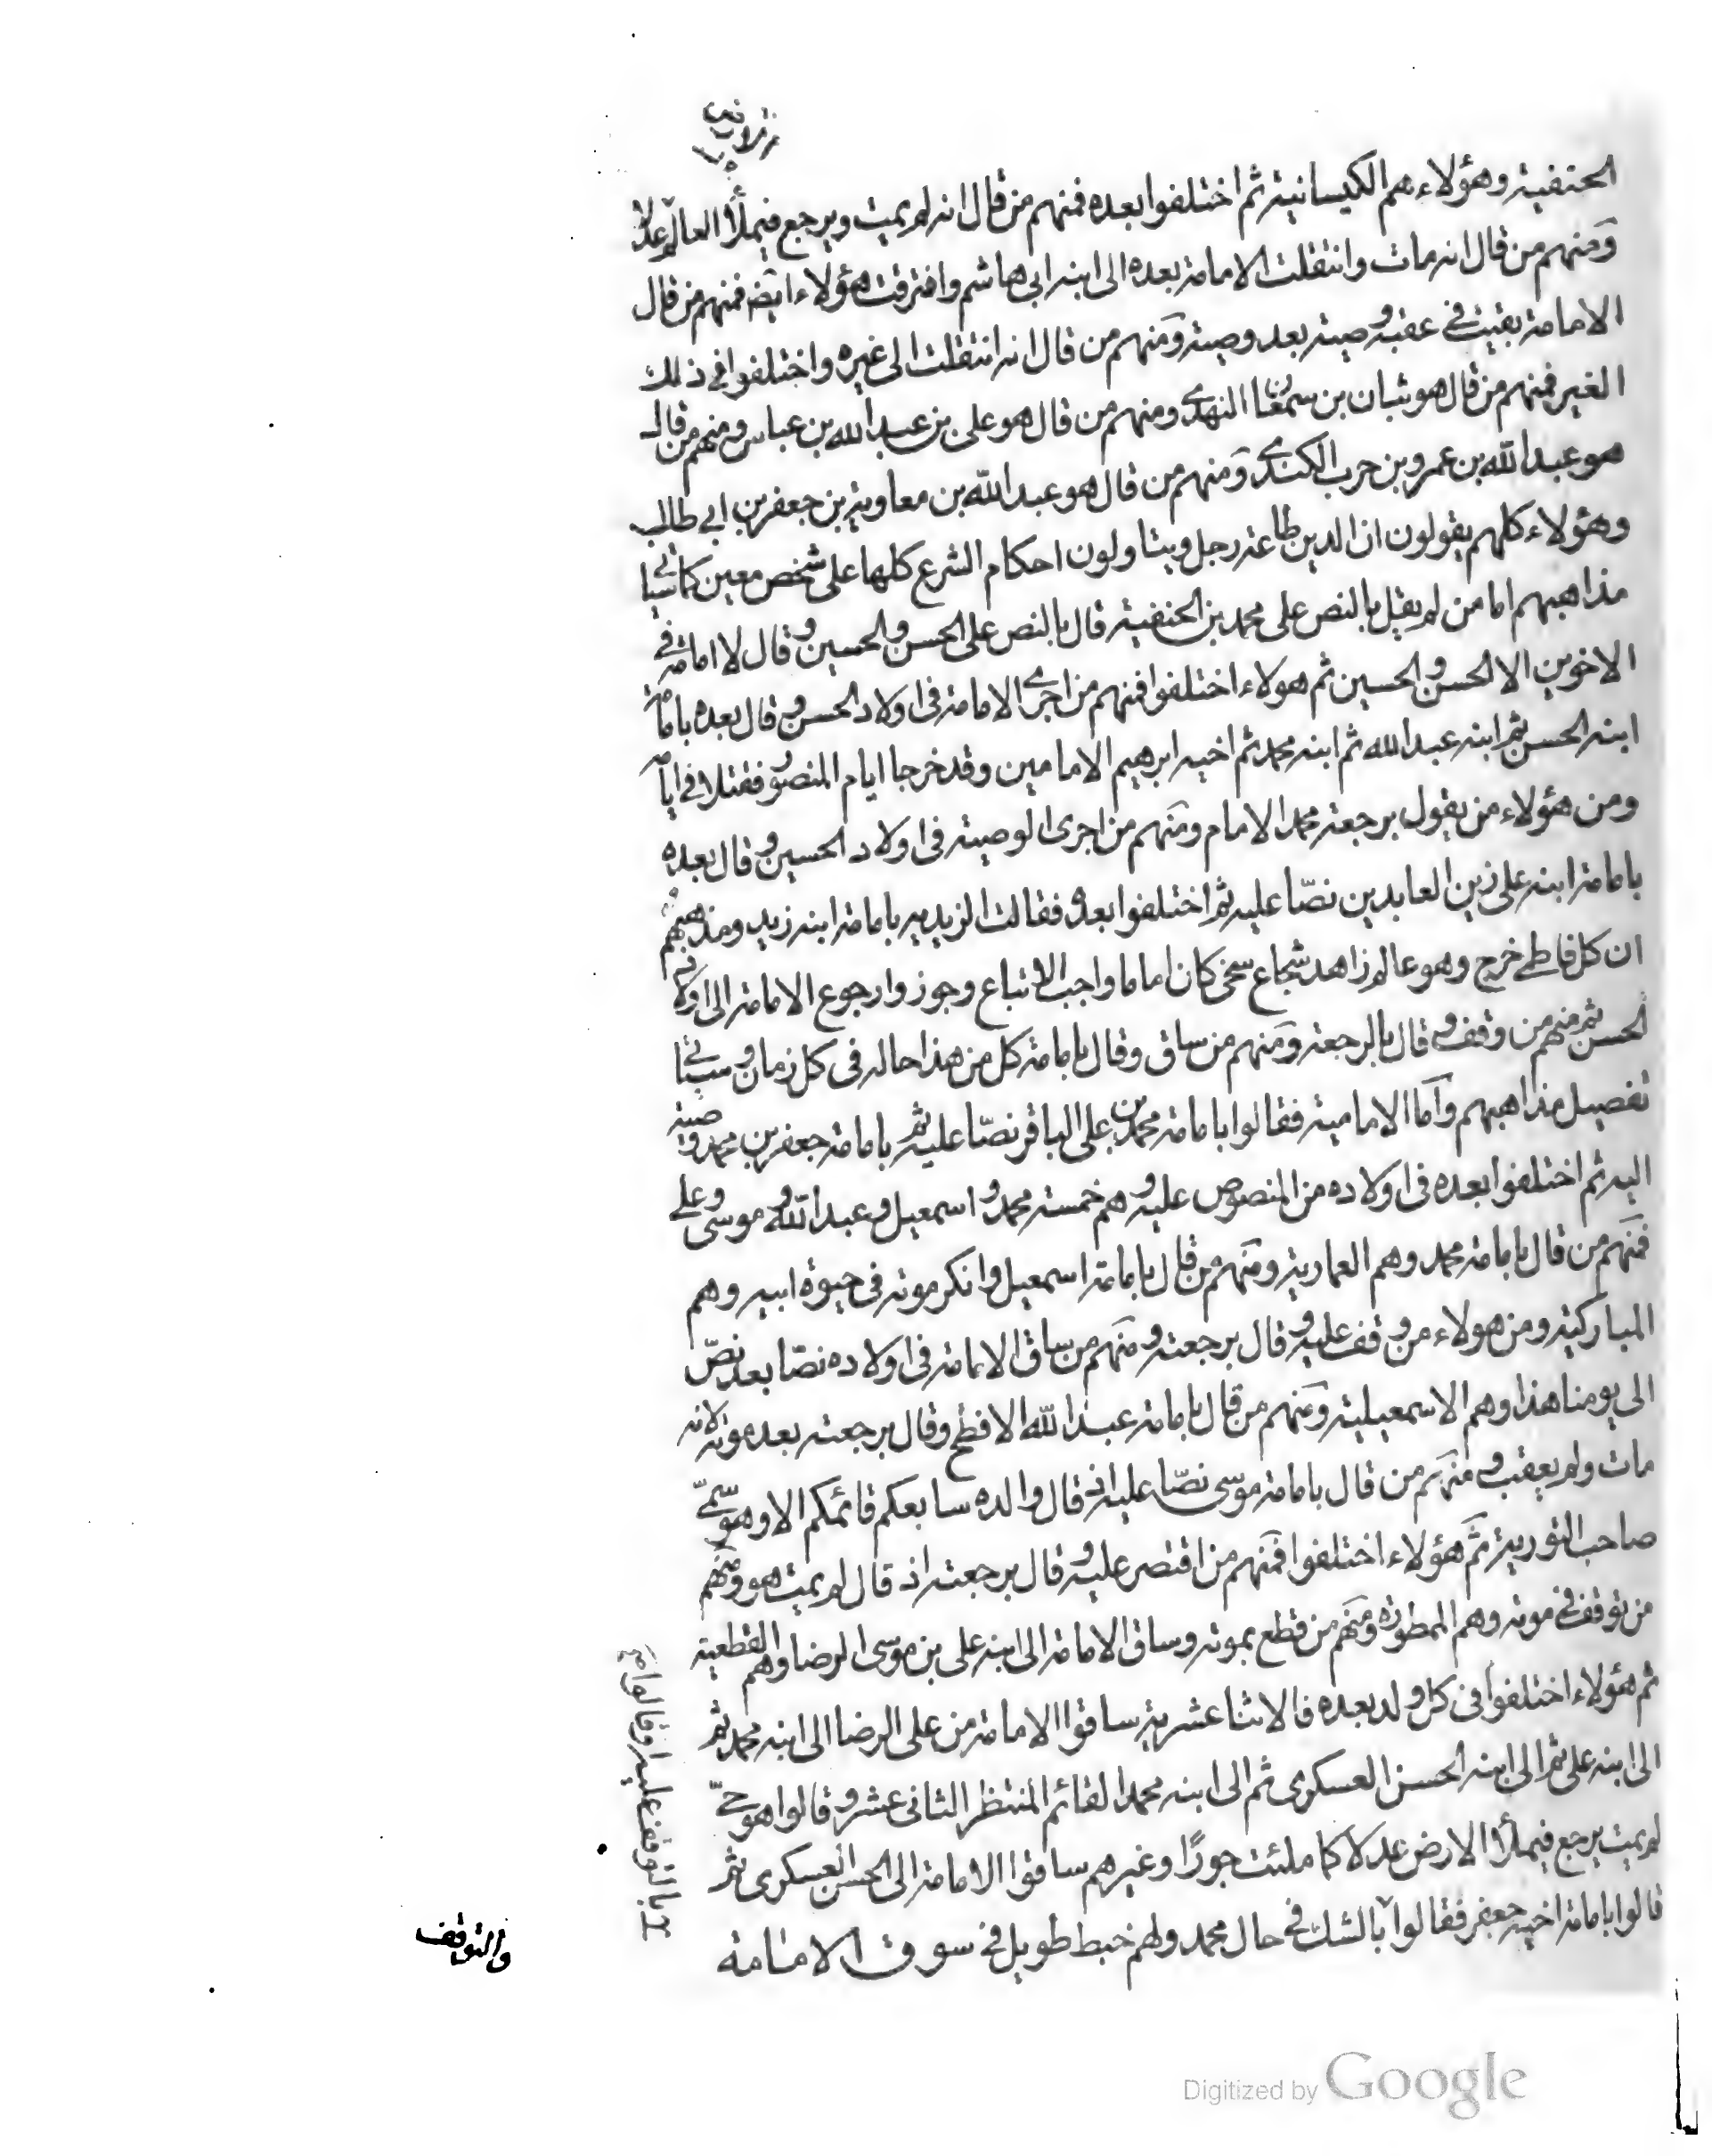 الحنفية وهؤلاء هم الكيسانية ثم اختلفوا بعده فمنهم من قال انه لم يمت ويرجع فيملأ العالم عدلا
ومنهم من قال انه مات وانتقلت الامامة بعده الى ابنه ابى هاشم وافترقت هؤلاء ايضه فمنهم من قال
الامامة بقيت في عقبه وصية بعد وصية ومنهم من قال انه انتقلت الى غيره واختلفوا في ذلك
الغير فمنهم من قال هو شبان بن سمعنا النهدى ومنهم من قال هو على بن عبد الله بن عباس ومنهم من قال
هو عبد الله بن عمرو بن حرب الكندى ومنهم من قال هو عبد الله بن معاوية بن جعفر بن ابي طالب
وهؤلاء كلهم يقولون ان الدين طاعة رجل ويتاولون احكام الشرع كلها على شخص معين كما ياتي
مذاهبهم اما من لم يقل بالنص على محمد بن الحنفية قال بالنص على الحسن والحسين وقال لا امامة في
الاخوين الا الحسن والحسين ثم هولاء اختلفوا فمنهم من اجرى الامامة فى اولاد الحسن وقال بعده بامامة
ابنه الحسن ثم ابنه عبد الله ثم ابنه محمد ثم اخيه ابرهيم الامامين وقد خرجا ايام المنصور فقتلا في ايامه
ومن هؤلاء من يقول برجعة محمد الامام ومنهم من اجرى الوصية فى اولاد الحسين وقال بعده
بامامة ابنه على زين العابدين نصّا عليه ثم اختلفوا بعده فقالت الزيديه بامامة ابنه زيد ومذهبهم
ان كل فاطمي خرج وهو عالم زاهد شجاع سخى كان اماما واجب الاتباع وجوزوا رجوع الامامة الى اولاد
الحسن ثم منهم من وقف وقال بالرجعة ومنهم من ساق وقال بامامة كل من هذا حاله فى كل زمان وسياتي
تفصيل مذاهبهم وأما الامامية فقالوا بامامة محمد بن على الباقر نصّا عليه ثم بامامة جعفر بن محمد وصية
اليه ثم اختلفوا بعده فى اولاده من المنصوص عليه وهم خمسة محمد واسمعيل وعبد الله وموسى وعلي
فمنهم من قال بامامة محمد وهم العمارية ومنهم من قال بامامة اسمعيل وانكر موته فى حيوة ابيه وهم
المباركية ومن هولاء من وقف عليه وقال برجعته ومنهم من ساق الامامة فى اولاده نصّا بعد نصّ
الى يومنا هذا وهم الاسمعيلية ومنهم من قال بامامة عبد الله الافطح وقال برجعته بعد موته لانه
مات ولم يعقب ومنهم من قال بامامة موسى نصّا عليه اذ قال والده سابعكم قائمكم الا وهو سمّي
صاحب التورية ثم هؤلاء اختلفوا فمنهم من اقتصر عليه وقال برجعته اذ قال لم يمت هو ومنهم
من توقف في موته وهم الممطورة ومنهم من قطع بموته وساق الامامة الى ابنه على بن موسى الرضا وهم القطعية
ثم هؤلاء اختلفوا فى كل ولد بعده فالاثنا عشرية ساقوا الامامة من على الرضا الى ابنه محمد ثم
الى ابنه على ثم الى ابنه الحسن العسكرى ثم الى ابنه محمد القائم المنتظر الثانى عشر وقالوا هو حيّ
لم يمت يرجع فيملأ الارض عدلا كما ملئت جورًا وغيرهم ساقوا الامامة الى الحسن العسكرى ثم
قالوا بامامة اخيه جعفر فقالوا بالشك في حال محمد ولهم خبط طويل في سوق الامامة
بالتوقف عليه او قالوا
والتوقف
Digitized by Google